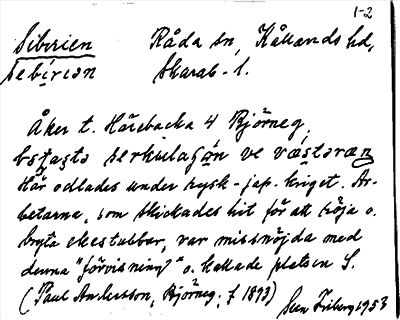 1-2
Sibirien Råda sn, Kållands hd,
sebirian Skarab. l.
Åker t. Härebacka 4 Björneg,
Här odlades under rysk-jap. kriget. Ar-
betarna, som skickades hit för att röja o.
bryta ekestubbar, var missnöjda med
denna "förvisning" o. kallade platsen S.
(Paul Andersson, Björneg. f 1893)
Sven Friberg 1953